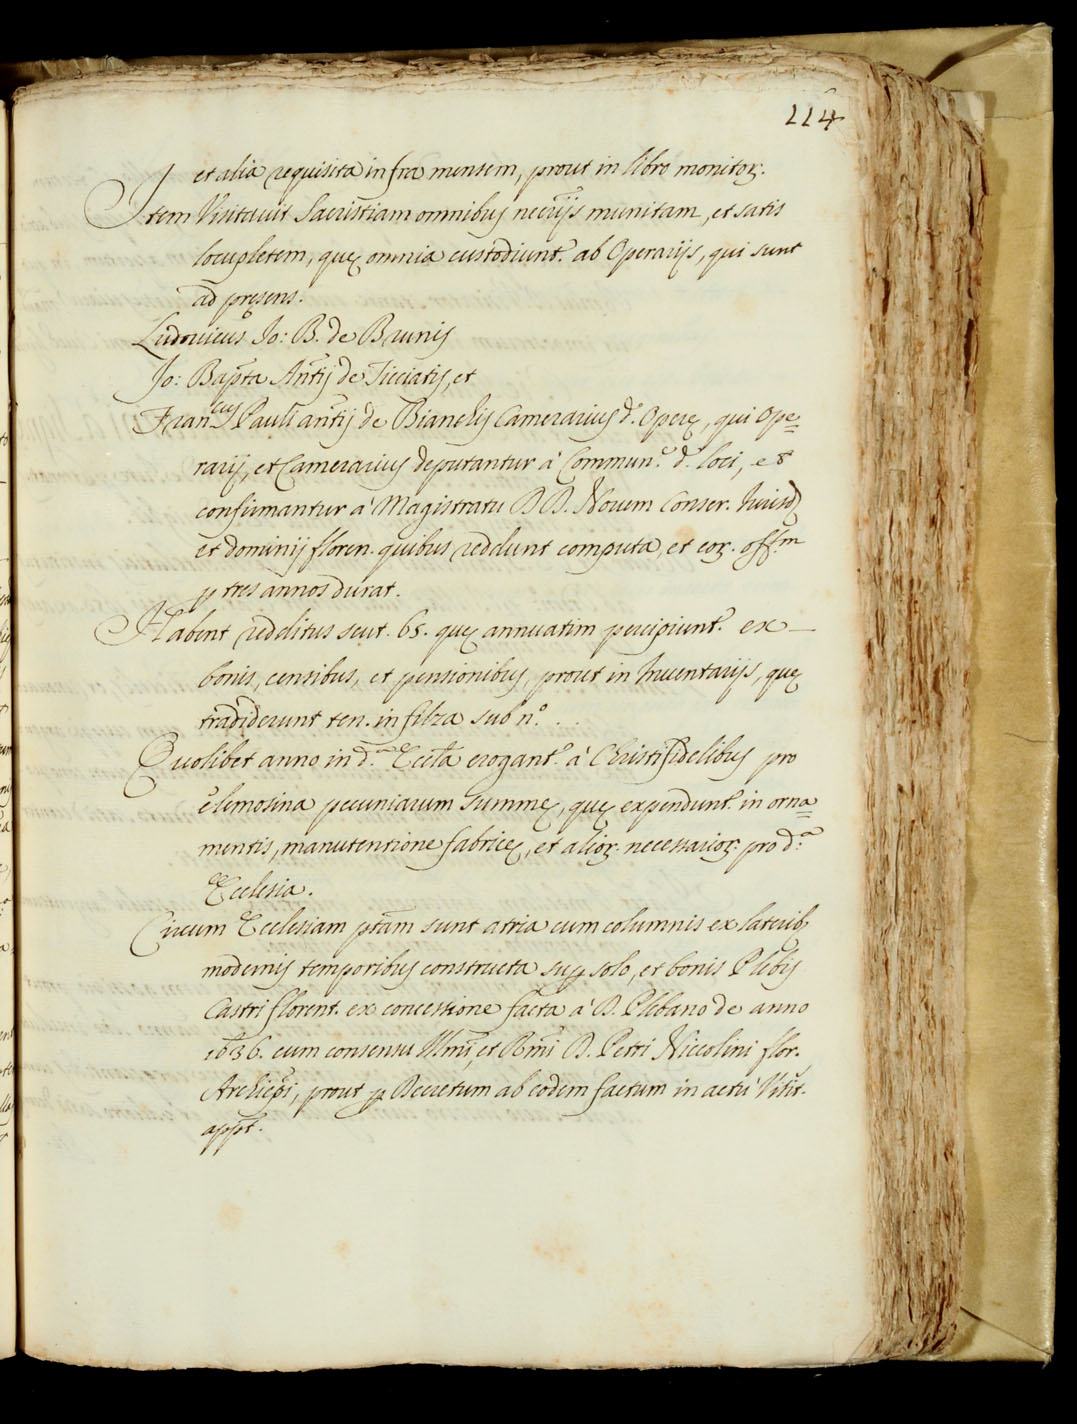 114
et alia requisita infra mensem, prout in libro monitor.
Item Visitavit Sacristiam omnibus necrijs munitam, et satis
locupletem, quę omnia custodiunt.r ab Operarijs, qui sunt
ad pręsens.
Ludovicus Io: B. de Brunis
Io: Bapta Antij de Ticciatis, et
Fran.cus Pauli antij de Bianchis Camerarius d.ę Operę, qui Ope=
rarij, et Camerarius deputantur à Commun.e d.i loci, et
confirmantur à Magistratu D D. Novem Conser. huiusq
et dominij floren. quibus reddunt computa, et eor. off.m
p tres annos durat.
Habent redditus scut. 65. quę annuatim percipiunt.r ex —
bonis, censibus, et pensionibus, prout in Inventarijs, quę
tradiderunt ten. in filza sub n.o . .
Quolibet anno in d.a Eccla erogant.r à Christifidelibus pro
elemosina pecuniarum summę, quę expendunt.r in orna=
mentis, manutentione fabricę, et alior. necessarior: pro d.a
Ecclesia.
Circum Ecclesiam ptam sunt atria cum columnis ex laterib,
modernis temporibus constructa sup solo, et bonis Plebis
Castri florent. ex concessione facta à D. Plebano de anno
1636. cum consensu Illmi, et Rmi D. Petri Niccolini flor.
Archiepi, prout p Decretum ab eodem factum in actu Visit.
appt.